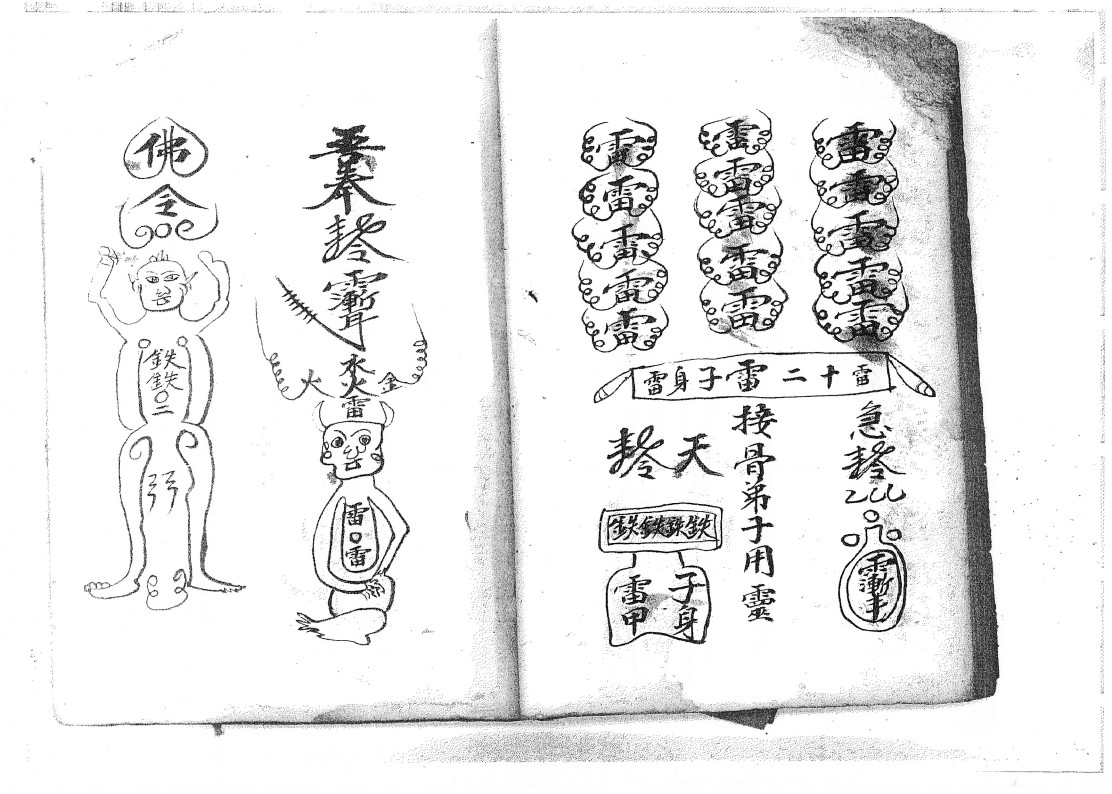 雷雷雷雷雷
雷雷雷雷雷
雷雷雷雷雷
雷十二雷子身雷
急
接骨弟子用靈
天
鉄鉄鉄鉄
子身
雷甲
吾奉
金
水火雷
火
雷雷
佛令
鉄鉄二